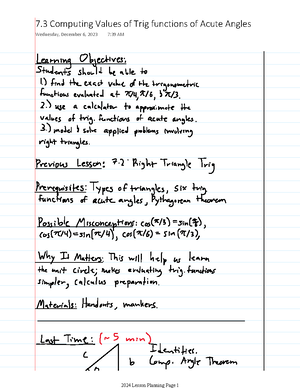 7.3 Computing Values of Trig functions of Acute Angles
Wednesday, December 6, 2023 7:39 AM
Learning Objectives:
Students should be able to
1) find the exact value of the trigonometric
functions evaluated at π/4, π/6, & π/3.
2.) use a calculator to approximate the
values of trig. functions of acute angles.
3.) model & solve applied problems involving
right triangles.
Previous Lesson: 7.2: Right Triangle Trig
Prerequisites: Types of triangles, six trig
functions of acute angles, Pythagorean theorem
Possible Misconceptions: cos(π/3)=sin(π/3),
cos(π/4)=sin(π/4), cos(π/6) = sin(π/3),
Why It Matters: This will help us learn
the unit circle; makes evaluating trig. functions
simpler, calculus preparation.
Materials: Handouts, markers.
Last Time: (~5 min)
Identities.
c b Comp. Angle Theorem
2024 Lesson Planning Page 1